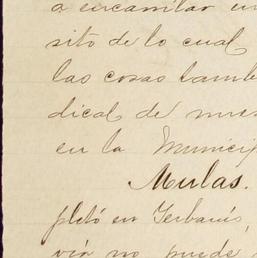 a encamilar un
sito de lo cual
las cosas tamb
dical de nues
en la Municip
Mulas.
pletó en Yerbanís,
vía no puede